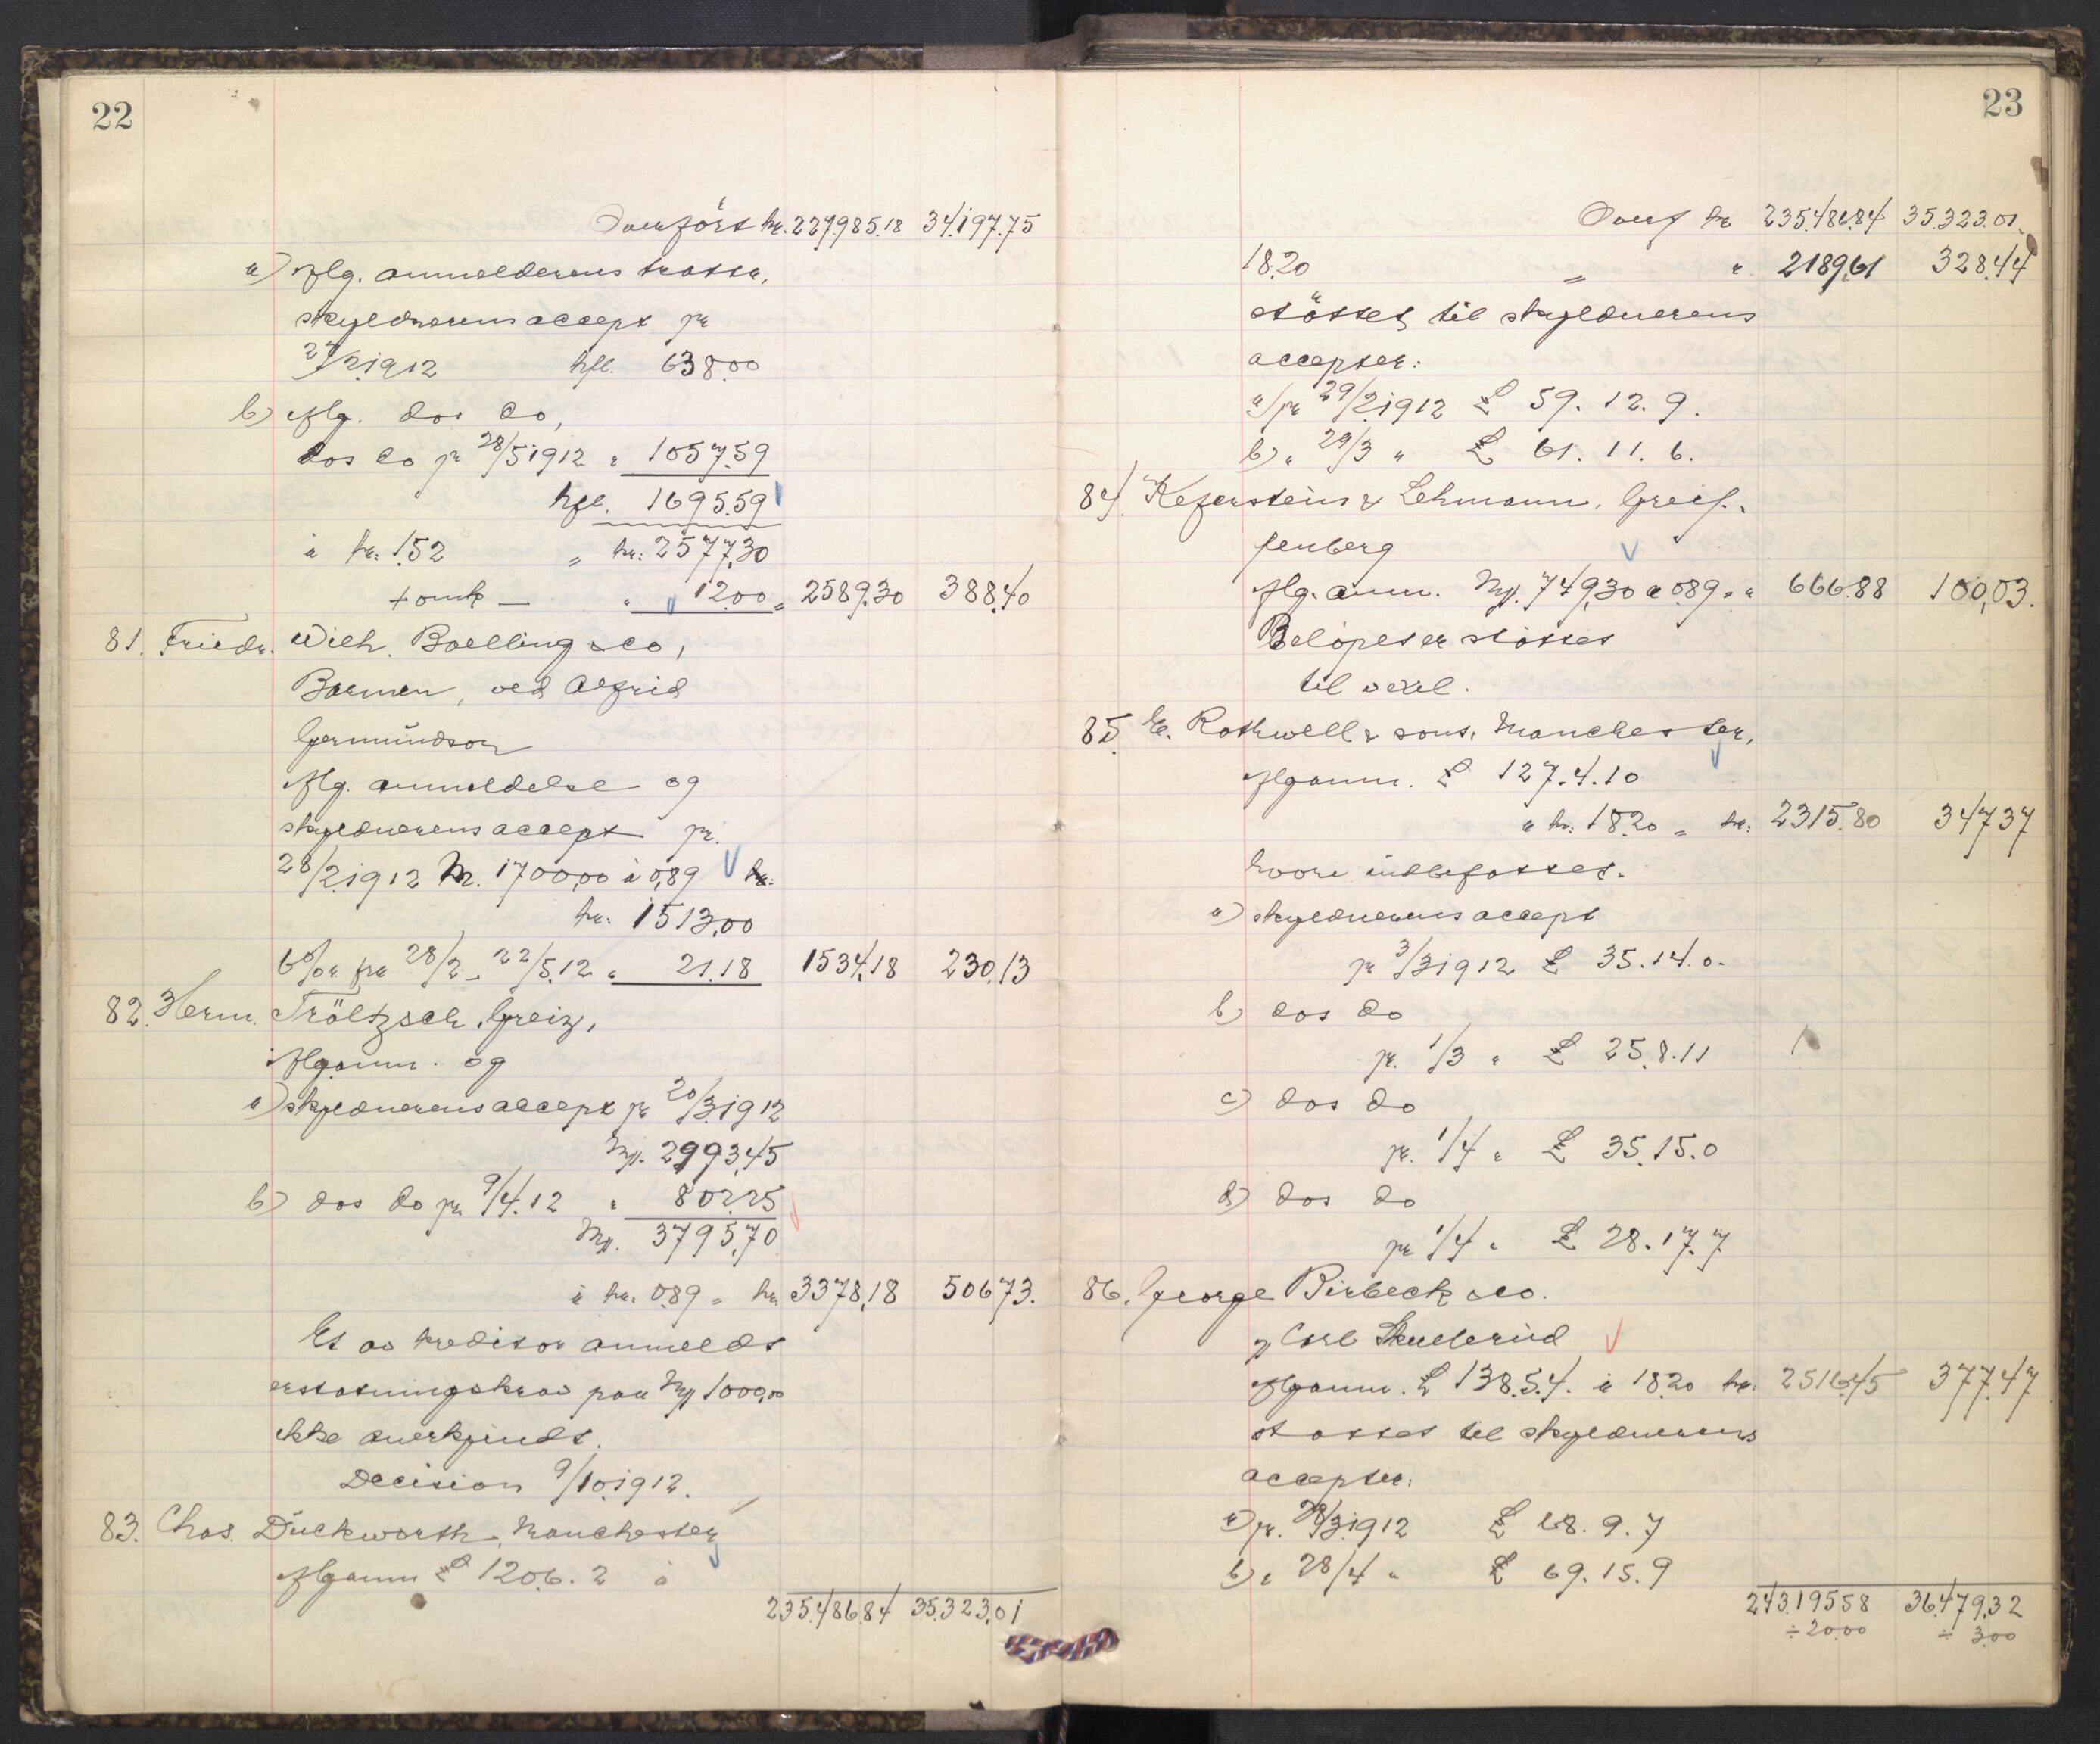 22
Overført kr. 227.985.18 34.197.75
a) iflg. anmelderens tratta,
skyldnerens accept pr
27/2 1912 hfl. 638.00
b) iflg. dos do,
dos do pr 28/5 1912 " 1057.59
hfl. 1695.59
à kr. 1.52 = kr. 2577,30
+ omk — " 12.00 = 2589.30 388.40
81. Friedr. Wilh. Boelling & Co,
Barmen, ved Alfrid
Germundson
iflg. anmeldelse og
skyldnerens accept pr.
28/2 1912 M. 1700,00 à 0,89 kr.
kr. 1513,00
6 % fra 28/2 - 22/5.12 " 21.18 1534,18 230,13
82. Herm. Tröltzsch, Greiz,
iflg anm. og
a) skyldnerens accept pr 20/3 1912
M. 2993,45
b) dos do pr. 9/4.12 " 802.25
M. 3795,70
à kr. 0.89 = kr. 3378,18 506.73.
Et av kreditor anmeldt
erstatningskrav paa M 1000,00
ikke anerkjendt.
Decision 9/10.1912.
83. Chas. Duckworth, Manchester
iflg anm £ 120.6.2 à
235.486.84 35.323,01
23
Overf kr 235.486.84 35.323.01.
18.20 = " 2189,61 328.44
støttet til skyldnerens
accepter:
a) pr 29/2 1912 £ 59.12.9.
b) " 29/3 " £ 61.11.6.
84. Keferstein & Lehmann, Greif-
fenberg
iflg. anm. M. 749,30 à 0.89 = " 666.88 100,03.
Beløpet er støttet
til vexel.
85. E. Rothwell & sons, Manchester,
iflg anm. £ 127.4.10
à kr. 18.20 = kr. 2315.80 347.37
hvori indbefattet.
a) skyldnerens accept
pr 3/3 1912 £ 35.14.0.
b) dos do
pr. 1/3 " £ 25.8.11
c) dos do
pr. 1/4 " £ 35.15.0
d) dos do
pr 1/4 " £ 28.17.7
86. George Birbeck & Co.
v/ Carl Skullerud
iflg anm. £ 138.5.4. à 18.20 kr. 2516.45 377.47
støttet til skyldnerens
accepter:
a) pr. 28/3 1912 £ 68.9.7
b) " 28/4 " £ 69.15.9
243.195.58 36.479,32
÷ 20.00 ÷ 3.00